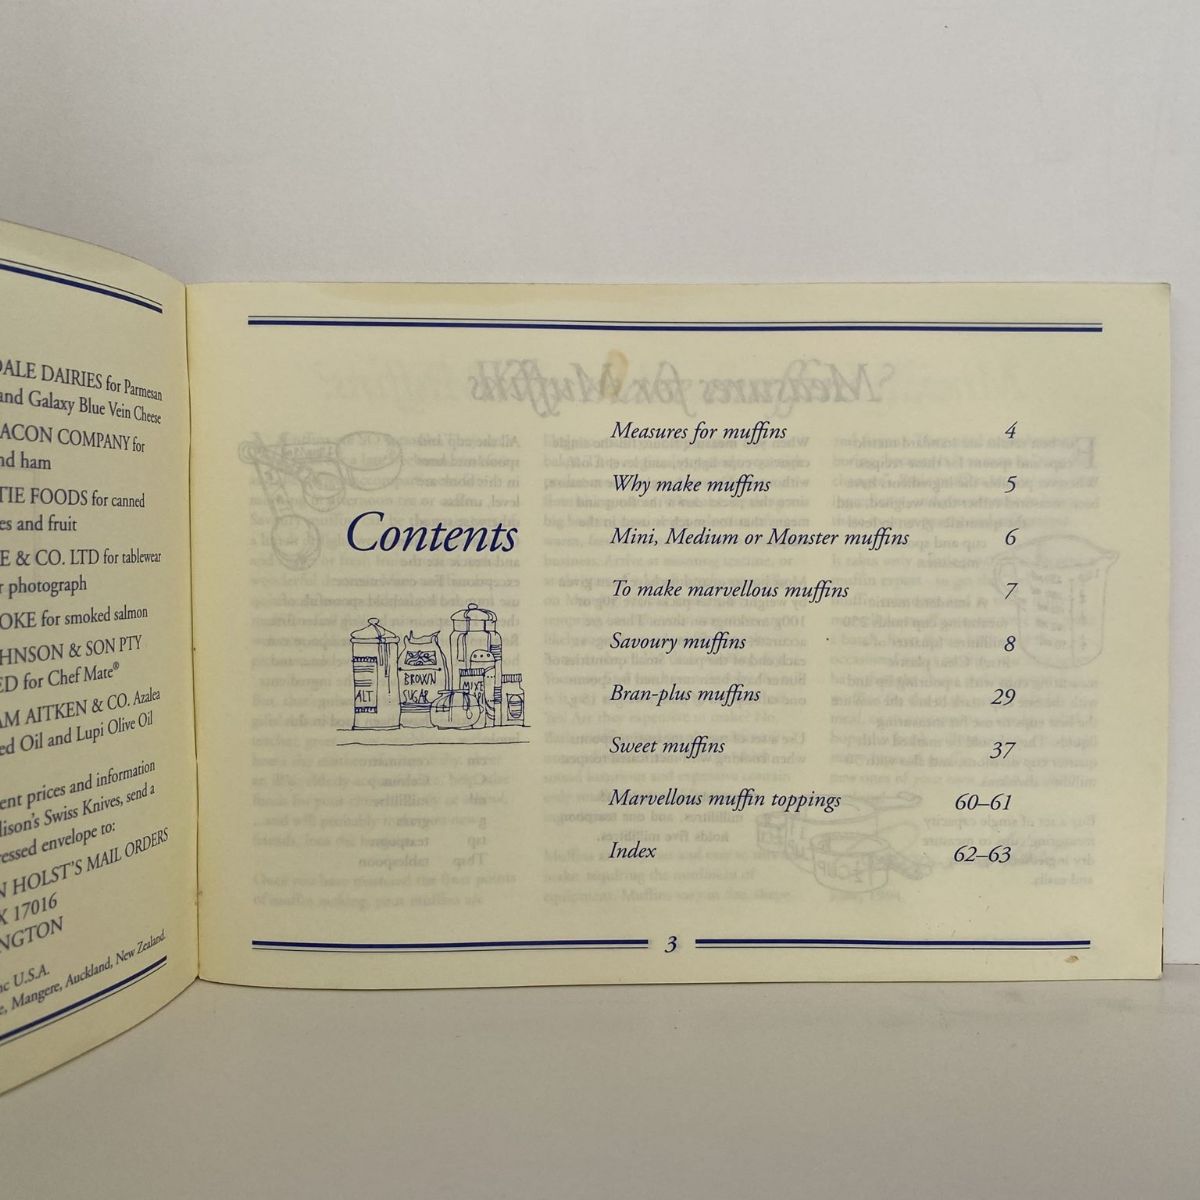 DALE DAIRIES for Parmesan
and Galaxy Blue Vein Cheese
ACON COMPANY for
nd ham
TIE FOODS for canned
es and fruit
E & CO. LTD for tablewear
r photograph
OKE for smoked salmon
HNSON & SON PTY
ED for Chef Mate®
AM AITKEN & CO. Azalea
ed Oil and Lupi Olive Oil
ent prices and information
lison's Swiss Knives, send a
ressed envelope to:
N HOLST'S MAIL ORDERS
X 17016
NGTON
nc U.S.A.
e, Mangere, Auckland, New Zealand.
Contents
ALT
BROWN
SUGAR
Measures for muffins 4
Why make muffins 5
Mini, Medium or Monster muffins 6
To make marvellous muffins 7
Savoury muffins 8
Bran-plus muffins 29
Sweet muffins 37
Marvellous muffin toppings 60–61
Index 62–63
3